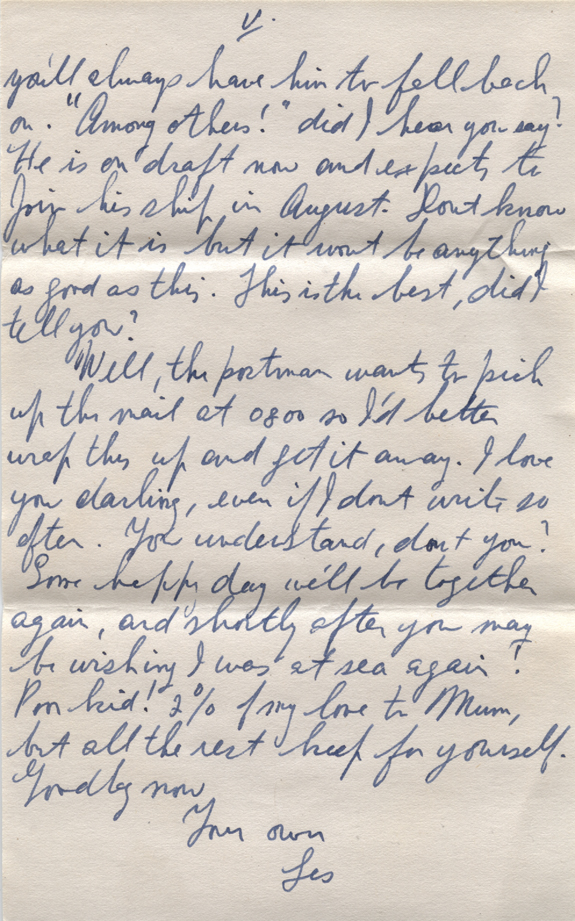 V.
you'll always have him to fall back
on. "Among others!" did I hear you say?
He is on draft now and expects to
join his ship in August. Dont know
what it is but it wont be anything
as good as this. This is the best, did I
tell you?
Well, the postman wants to pick
up the mail at 0800 so I'd better
wrap this up and get it away. I love
you darling, even if I dont write so
often. You understand, dont you?
Some happy day we'll be together
again, and shortly after you may
be wishing I was at sea again!
Poor kid! 2% of my love to Mum,
but all the rest keep for yourself.
Goodby now
Your own
Les